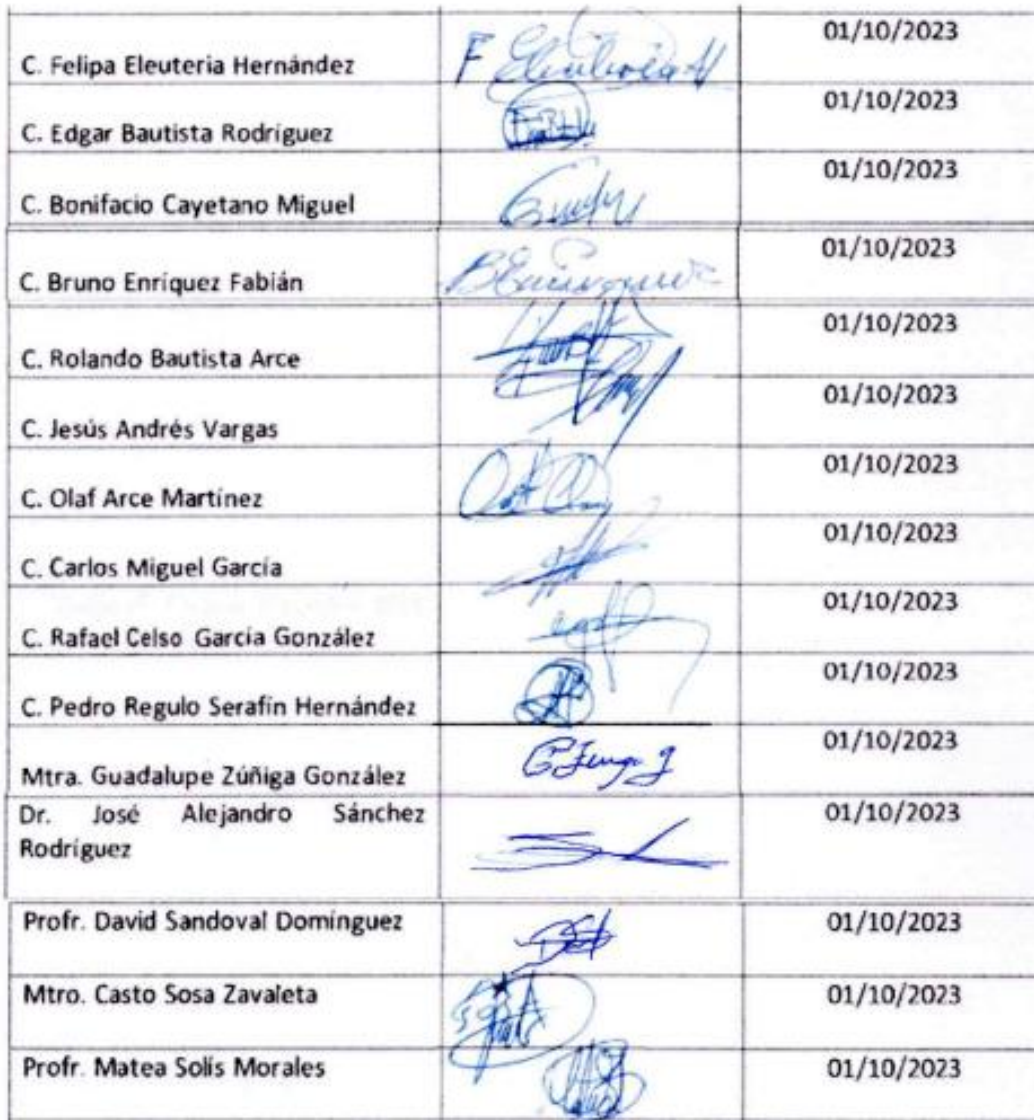 C. Felipa Eleuteria Hernández 01/10/2023
C. Edgar Bautista Rodríguez 01/10/2023
C. Bonifacio Cayetano Miguel 01/10/2023
C. Bruno Enríquez Fabián 01/10/2023
C. Rolando Bautista Arce 01/10/2023
C. Jesús Andrés Vargas 01/10/2023
C. Olaf Arce Martínez 01/10/2023
C. Carlos Miguel García 01/10/2023
C. Rafael Celso García González 01/10/2023
C. Pedro Regulo Serafín Hernández 01/10/2023
Mtra. Guadalupe Zúñiga González 01/10/2023
Dr. José Alejandro Sánchez 01/10/2023
Rodríguez
Profr. David Sandoval Domínguez 01/10/2023
Mtro. Casto Sosa Zavaleta 01/10/2023
Profr. Matea Solís Morales 01/10/2023